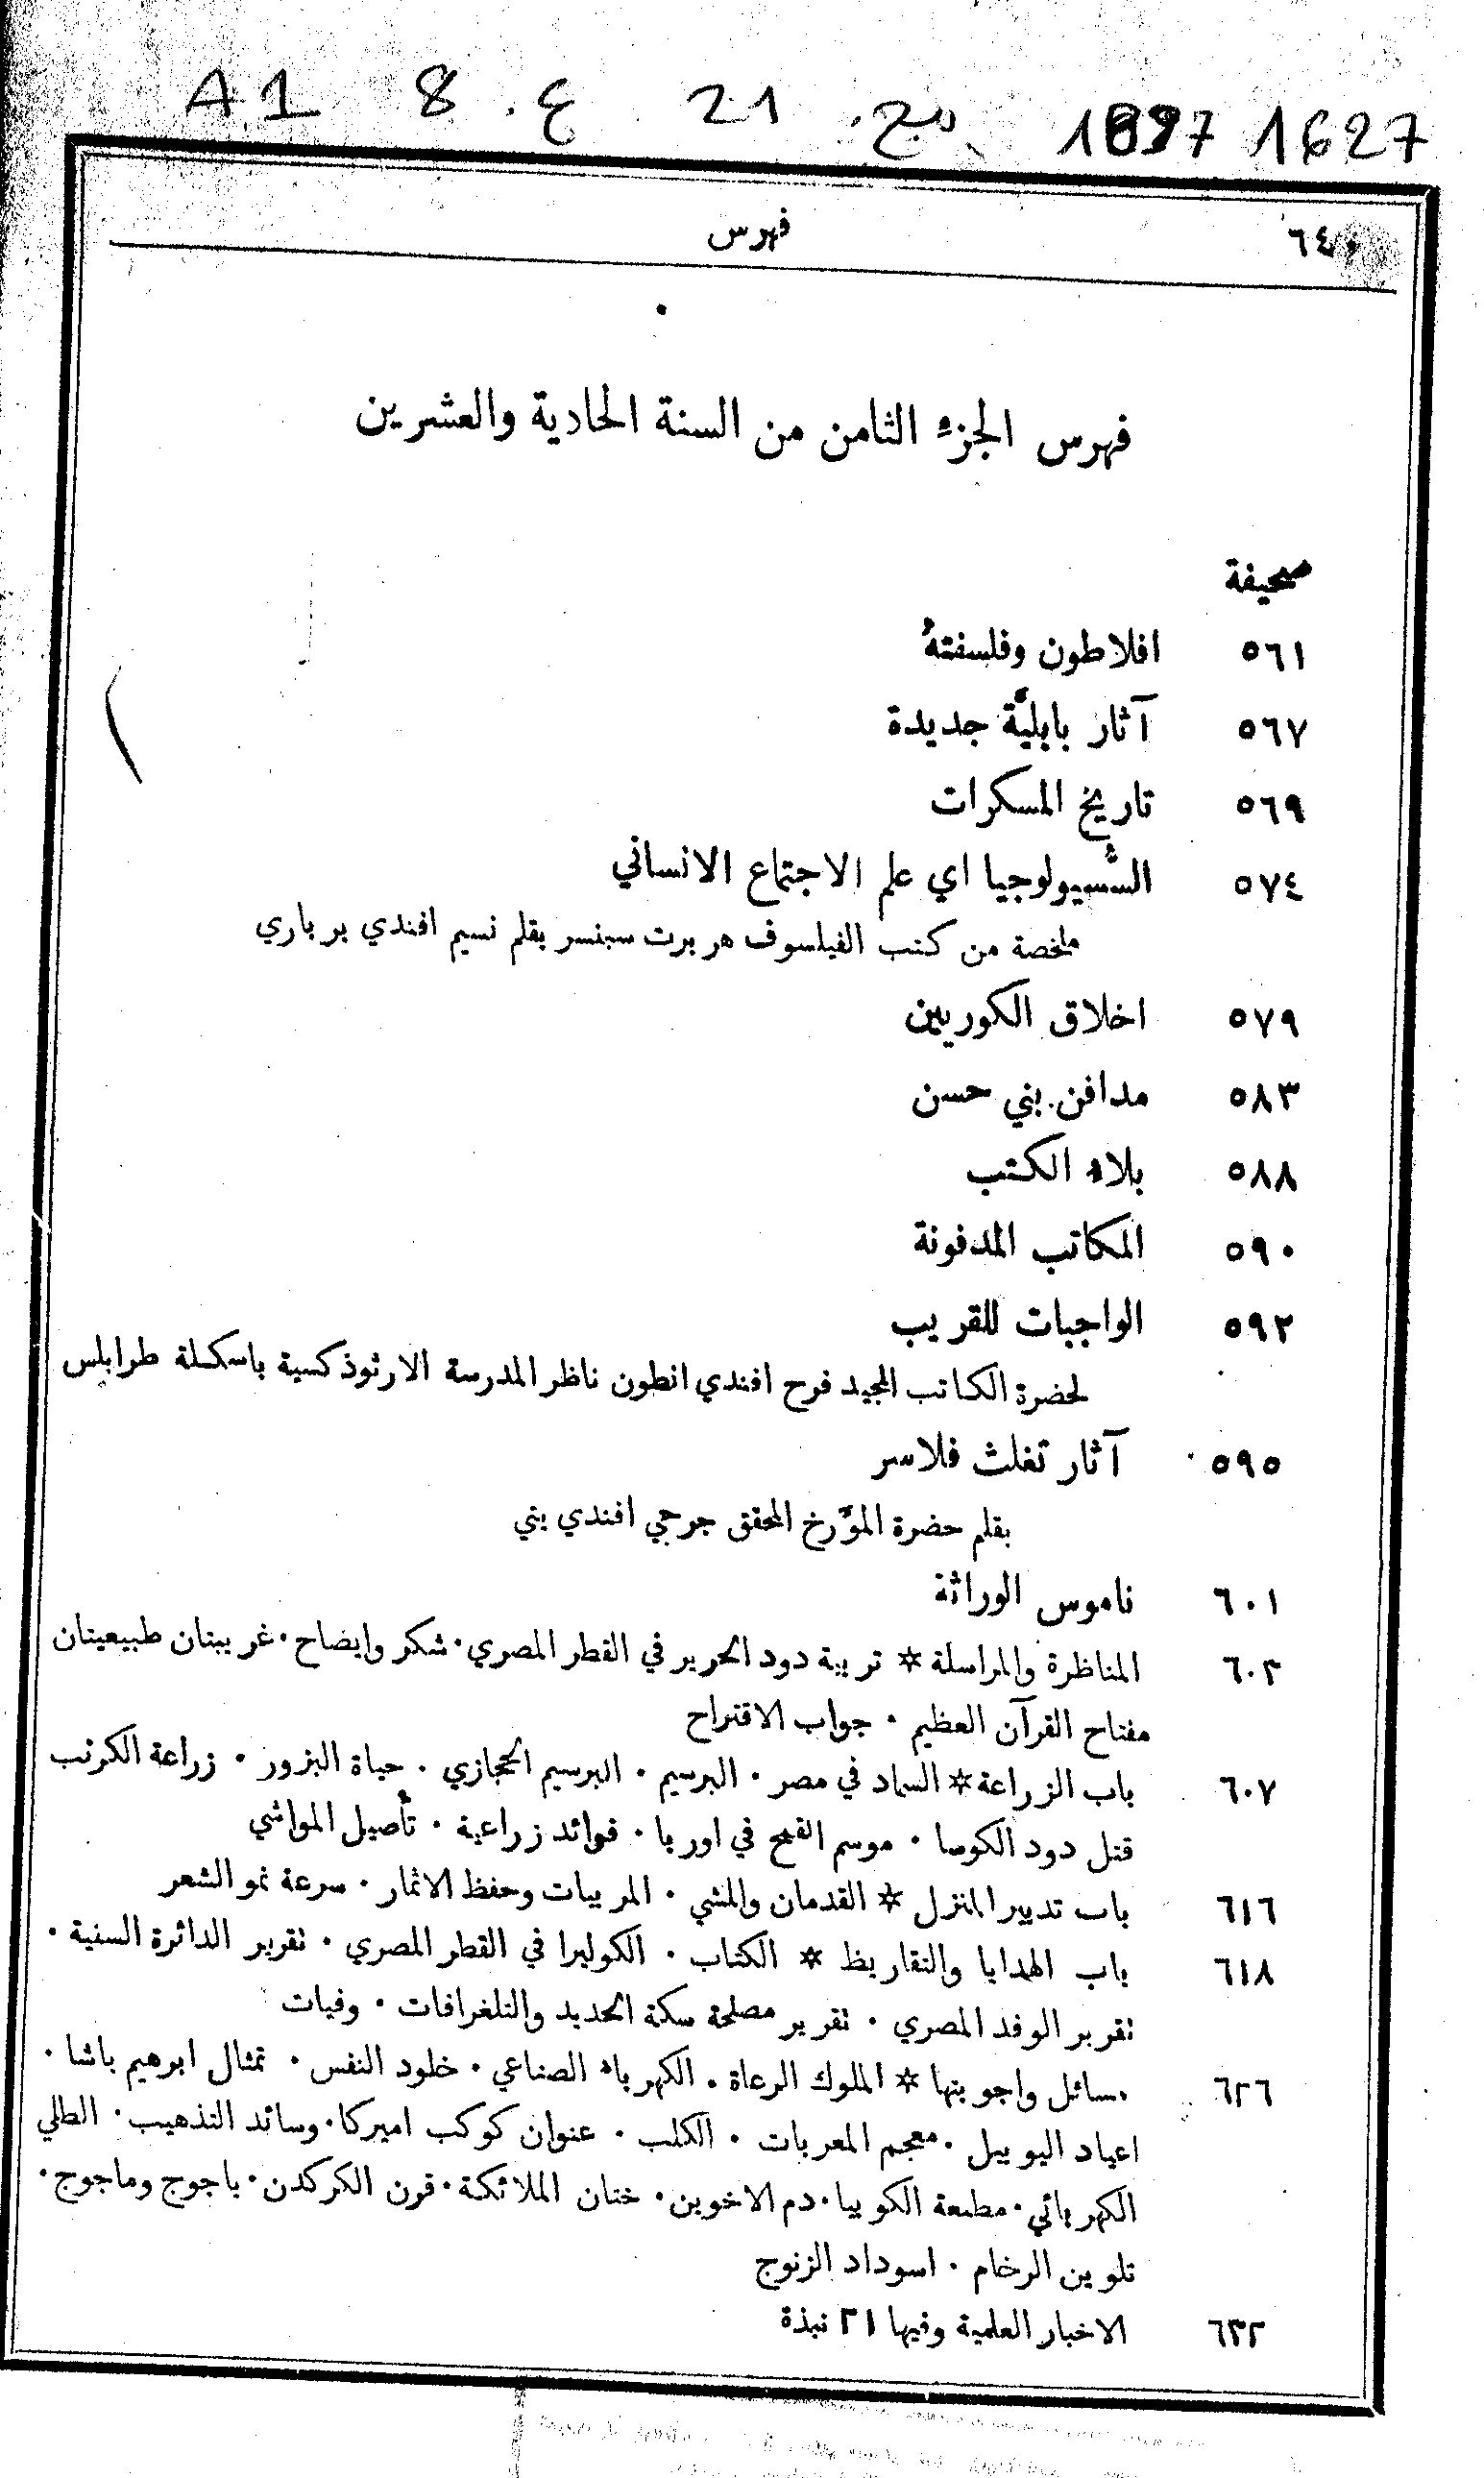 1627 1897 مج. 21 ع. 8 A1
٦٤٠ فهرس
فهرس الجزء الثامن من السنة الحادية والعشرين
صحيفة
٥٦١ افلاطون وفلسفتهُ
٥٦٧ آثار بابليَّة جديدة
٥٦٩ تاريخ المسكرات
٥٧٤ السُّسيولوجيا اي علم الاجتماع الانساني
ملخصة من كتب الفيلسوف هربرت سبنسر بقلم نسيم افندي برباري
٥٧٩ اخلاق الكوريين
٥٨٣ مدافن بني حسن
٥٨٨ بلاء الكتب
٥٩٠ المكاتب المدفونة
٥٩٢ الواجبات للقريب
لحضرة الكاتب المجيد فرح افندي انطون ناظر المدرسة الارثوذكسية باسكلة طرابلس
٥٩٥ آثار تغلث فلاسر
بقلم حضرة المؤَرخ المحقق جرجي افندي يني
٦٠١ ناموس الوراثة
٦٠٢ المناظرة والمراسلة * تربية دود الحرير في القطر المصري ٠ شكر وايضاح ٠ غريبتان طبيعيتان
مفتاح القرآن العظيم ٠ جواب الاقتراح
٦٠٧ باب الزراعة * السماد في مصر ٠ البرسيم ٠ البرسيم الحجازي ٠ حياة البزور ٠ زراعة الكرنب
قتل دود الكوسا ٠ موسم القمح في اوربا ٠ فوائد زراعية ٠ تأصيل المواشي
٦١٦ باب تدبير المنزل * القدمان والمشي ٠ المربيات وحفظ الاثمار ٠ سرعة نمو الشعر
٦١٨ باب الهدايا والتقاريظ * الكتاب ٠ الكوليرا في القطر المصري ٠ تقرير الدائرة السنية ٠
تقرير الوفد المصري ٠ تقرير مصلحة سكة الحديد والتلغرافات ٠ وفيات
٦٢٦ مسائل واجوبتها * الملوك الرعاة ٠ الكهرباء الصناعي ٠ خلود النفس ٠ تمثال ابرهيم باشا ٠
اعياد اليوبيل ٠ معجم المعربات ٠ الكلب ٠ عنوان كوكب اميركا ٠ وسائد التذهيب ٠ الطلي
الكهربائي ٠ مطبعة الكوبيا ٠ دم الاخوين ٠ ختان الملائكة ٠ قرن الكركدن ٠ ياجوج وماجوج ٠
تلوين الرخام ٠ اسوداد الزنوج
٦٣٢ الاخبار العلمية وفيها ٢١ نبذة